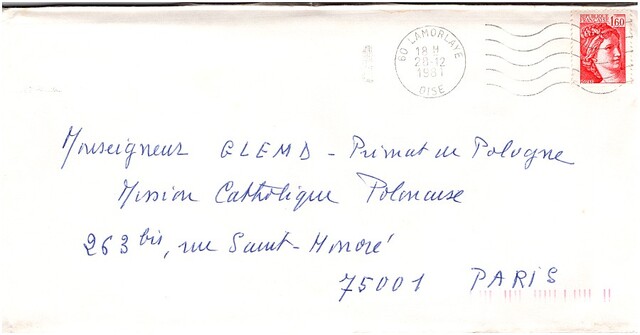 60 LAMORLAYE
18 H
28-12
1981
OISE
1,60
Monseigneur GLEMP - Primat de Pologne
Mission Catholique Polonaise
263 bis, rue Saint-Honoré
75001 PARIS